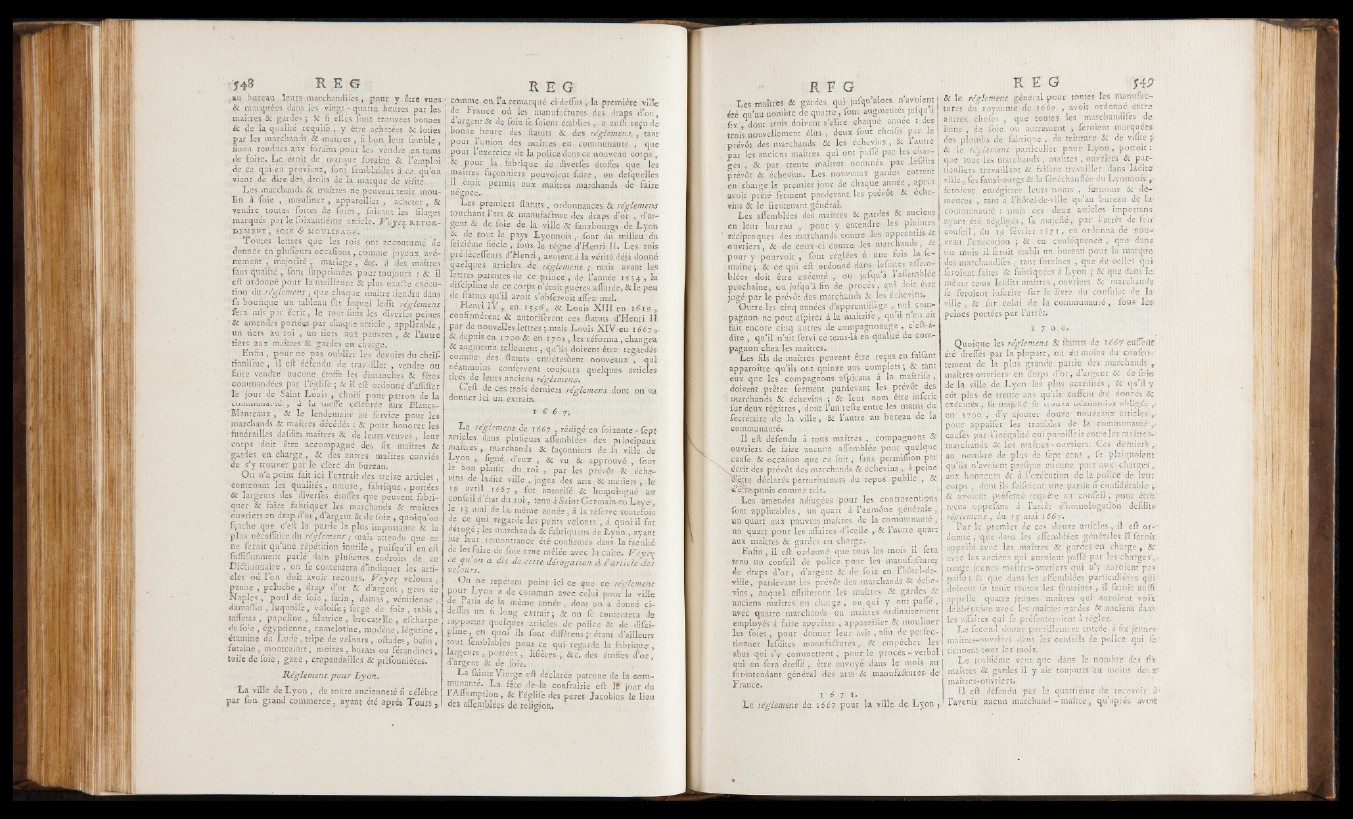 548 REG
au bureau leurs marchandises, pour y être vues
& marquées dans les vingt-quatre heures par les
maîtres & gardes; & si elles sont trouvées bonnes
& de la qualité requise, y être achetées & loties
par les marchands & maîtres, si bon leur semble,
sinon rendues aux forains pour les vendre en tems
de foire. Le droit de marque foraine & l'emploi
de ce qui en provient, sont semblables à ce qu'on
vient de dire des droits de la marque de visite.
Les marchands & maîtres ne peuvent tenir mou-
lin à soie, mouliner, appareiller, acheter, &
vendre toutes sortes de soies, suivant les filages
marqués par le soixantième article. Voyez RETOR-
DEMENT, SOIE & MOULINAGE.
Toutes lettres que les rois ont accoutumé de
donner en plusieurs occasions, comme joyeux avé-
nement, majorité, mariage, &c. à des maîtres
sans qualité, sont supprimées pour toujours : & il
est ordonné pour la meilleure & plus exacte exécu-
tion du réglement, que chaque maître tiendra dans
sa boutique un tableau sur lequel ledit réglement
sera mis par écrit, le tout sous les diverses peines
& amendes portées par chaque article, applicable,
un tiers au roi, un tiers aux pauvres, & l'autre
tiers aux maîtres & gardes en charge.
Enfin, pour ne pas oublier les devoirs du chris-
tianisme, il est défendu de travailler, vendre ou
faire vendre aucune étoffe les dimanches & fêtes
commandées par l'église; & il est ordonné d'assister
le jour de Saint Louis, choisi pour patron de la
communauté, à la messe célébrée aux Blancs-
Manteaux, & le lendemain au service pour les
marchands & maîtres décédés : & pour honorer les
funérailles desdits maîtres & de leurs veuves, leur
corps doit être accompagné des six maîtres &
gardes en charge, & des autres maîtres conviés
de s'y trouver par le clerc du bureau.
On n'a point fait ici l'extrait des treize articles,
contenant les qualités, nature, fabrique, portées
& largeurs des diverses étoffes que peuvent fabri-
quer & faire fabriquer les marchands & maîtres
ouvriers en drap d'or, d'argent & de soie, quoiqu'on
sçache que c'est la partie la plus importante & la
plus nécessaire du réglement; mais attendu que ce
ne seroit qu'une répétition inutile, puisqu'il en est
suffisamment parlé dans plusieurs endroits de ce
Dictionnaire, on se contentera d'indiquer les arti-
cles où l'on doit avoir recours. Voyez velours,
panne, peluche, drap d'or & d'argent, gros de
Naples, poul de soie, satin, damas, vénitienne,
damassin, luquoise, valoise; serge de soie, tabis,
taffetas, papeline, filatrice, brocatelle, escharpe
de soie, égyptienne, camelotine, modéne, légatine,
étamine du Lude, tripe de velours, ostades, basin,
futaine, moncaiart, moires, burats ou férandines,
toile de soie, gaze, crapaudailles & prisonnières.
Réglement pour Lyon.
La ville de Lyon, de toute ancienneté si célébre
par son grand commerce, ayant été après Tours,
REG
comme on l'a remarqué ci-dessus, la première ville
de France où les manufactures des draps d'or,
d'argent & de soie se soient établies, a aussi reçu de
bonne heure des statuts & des réglemens, tant
pour l'union des maîtres en communauté, que
pour l'exercice de la police dans ce nouveau corps,
& pour la fabrique de diverses étoffes que les
maîtres façonniers pouvoient faire, ou desquelles
il étoit permis aux maîtres marchands de faire
négoce.
Les premiers statuts, ordonnances & réglemens
touchant l'art & manufacture des draps d'or, d'ar-
gent & de soie de la ville & fauxbourgs de Lyon
& de tout le pays Lyonnois, sont du milieu du
seizième siécle, sous le régne d'Henri II. Les rois
prédécesseurs d'Henri, avoient à la vérité déjà donné
quelques articles de réglement; mais avant les
lettres patentes de ce prince, de l'année 1554, la
discipline de ce corps n'étoit guères assurée, & le peu
de statuts qu'il avoit s'observoit assez mal.
Henri IV, en 1596, & Louis XIII en 1619,
confirmèrent & autorisèrent ces statuts d'Henri II
par de nouvelles lettres; mais Louis XIV en 1667,
& depuis en 1700 & en 1702, les réforma, changea
& augmenta tellement, qu'ils doivent être regardés
comme des statuts entièrement nouveaux, qui
néanmoins conservent toujours quelques articles
tirés de leurs anciens réglemens.
C'est de ces trois derniers réglemens dont on va
donner ici un extrait.
1667.
Le réglement de 1667, rédigé en soixante-sept
articles dans plusieurs assemblées des principaux
maîtres, marchands & façonniers de la ville de
Lyon, signé d'eux, & vu & approuvé, sous
le bon plaisir du roi, par les prévôt & éche-
vins de ladite ville, juges des arts & métiers, le
19 avril 1667, fut autorisé & homologué au
conseil d'état du roi, tenu à Saint Germain-en-Laye,
le 13 mai de la même année, à la réserve toutefois
de ce qui regarde les petits velours, à quoi il fut
dérogé; les marchands & fabriquans de Lyon, ayant
sur leur remontrance été confirmés dans la faculté
de les faire de soie crue mêlée avec la cuite. Voyez
ce qu'on a dit de cette dérogation à l'article des
velours.
On ne répétera point ici ce que ce réglement
pour Lyon a de commun avec celui pour la ville
de Paris de la même année, dont on a donné ci-
dessus un si long extrait; & on se contentera de
rapporter quelques articles de police & de disci-
pline, en quoi ils sont différens; étant d'ailleurs
tout semblables pour ce qui regarde la fabrique,
largeurs, portées, lisières, &c. des étoffes d'or,
d'argent & de soie.
La sainte Vierge est déclarée patrone de la com-
munauté. La fête de la confrairie est le jour de
l'Assomption, & l'église des peres Jacobins le lieu
des assemblées de religion.
REG
Les maîtres & gardes qui jusqu'alors n'avoient
été qu'au nombre de quatre, sont augmentés jusqu'à
six, dont trois doivent s'élire chaque année : des
trois nouvellement élus, deux sont choisis par le
prévôt des marchands & les échevins, & l'autre
par les anciens maîtres qui ont passé par les char-
ges, & par trente maîtres nommés par lesdits
prévôt & échevins. Les nouveaux gardes entrent
en charge le premier jour de chaque année, après
avoir prêté serment pardevant les prévôt & éche-
vins & le lieutenant général.
Les assemblées des maîtres & gardes & anciens
en leur bureau, pour y entendre les plaintes
réciproques des marchands contre les apprentifs &
ouvriers, & de ceux-ci contre les marchands, &
pour y pourvoir, sont réglées à une fois la se-
maine; & ce qui est ordonné dans lesdites assem-
blées doit être exécuté, ou jusqu'à l'assemblée
prochaine, ou jusqu'à fin de procès, qui doit être
jugé par le prévôt des marchands & les échevins.
Outre les cinq années d'apprentissage, nul com-
pagnon ne peut aspirer à la maîtrise, qu'il n'en ait
fait encore cinq autres de compagnonage, c'est-à-
dire, qu'il n'ait servi ce tems-là en qualité de com-
pagnon chez les maîtres.
Les fils de maîtres peuvent être reçus en faisant
apparoître qu'ils ont quinze ans complets; & tant
eux que les compagnons aspirans à la maîtrise,
doivent prêter serment pardevant les prévôt des
marchands & échevins; & leur nom être inscrit
sur deux régistres, dont l'un reste entre les mains du
secrétaire de la ville, & l'autre au bureau de la
communauté.
Il est défendu à tous maîtres, compagnons &
ouvriers de faire aucune assemblée pour quelque
cause & occasion que ce soit, sans permission par
écrit des prévôt des marchands & échevins, à peine
d'être déclarés perturbateurs du repos public, &
d'être punis comme tels.
Les amendes adjugées pour les contraventions
sont applicables, un quart à l'aumône générale,
un quart aux pauvres maîtres de la communauté,
un quart pour les affaires d'icelle, & l'autre quart
aux maîtres & gardes en charge.
Enfin, il est ordonné que tous les mois il sera
tenu un conseil de police pour les manufactures
de draps d'or, d'argent & de soie en l'hôtel-de-
ville, pardevant les prévôt des marchands & éche-
vins, auquel assisteront les maîtres & gardes &
anciens maîtres en charge, ou qui y ont passé,
avec quatre marchands ou maîtres ordinairement
employés à faire apprêter, appareiller & mouliner
les soies, pour donner leur avis, afin de perfec-
tionner lesdites manufactures, & empêcher les
abus qui s'y commettent, pour le procès-verbal
qui en sera dressé, être envoyé dans le mois au
sur-intendant général des arts & manufactures de
France.
1671.
Le réglement de 1667 pour la ville de Lyon,
REG 549
& le réglement général pour toutes les manufac-
tures du royaume de 1669, avoit ordonné entre
autres choses, que toutes les marchandises de
laine, de soie ou autrement, seroient marquées
des plombs de fabrique, de teinture & de visite;
& le réglement particulier pour Lyon, portoit :
que tous les marchands, maîtres, ouvriers & par-
ticuliers travaillant & faisant travailler dans ladite
ville, ses fauxbourgs & la sénéchaussée du Lyonnois,
seroient enrégistrer leurs noms, surnoms & de-
meures, tant à l'hôtel-de-ville qu'au bureau de la
communauté : mais ces deux articles importans
ayant été négligés, sa majesté, par l'arrêt de son
conseil, du 29 février 1671, en ordonna de nou-
veau l'exécution; & en conséquence, que dans
un mois il seroit établi un bureau pour la marque
des marchandises, tant foraines, que de celles qui
seroient faites & fabriquées à Lyon; & que dans le
même tems lesdits maîtres, ouvriers & marchands
se feroient inscrire sur le livre du consulat de la
ville, & sur celui de la communauté, sous les
peines portées par l'arrêt.
1700.
Quoique les réglemens & statuts de 1667 eussent
été dressés par la plupart, ou du moins du consen-
tement de la plus grande partie des marchands,
maîtres-ouvriers en draps d'or, d'argent & de soie
de la ville de Lyon les plus accrédités, & qu'il y
eût plus de trente ans qu'ils eussent été donnés &
exécutés, sa majesté se trouva néanmoins obligée,
en 1700, d'y ajouter douze nouveaux articles,
pour appaiser les troubles de la communauté,
causés par l'inégalité qui paroissoit entre les maîtres-
marchands & les maîtres-ouvriers. Ces derniers,
au nombre de plus de sept cent, se plaignoient
qu'ils n'avoient presque aucune part aux charges,
aux honneurs & à l'exécution de la police de leur
corps, dont ils faisoient une partie si considérable;
& avoient présenté requête au conseil, pour être
reçus opposans à l'arrêt d'homologation desdits
réglemens, du 13 mai 1667.
Par le premier de ces douze articles, il est or-
donné, que dans les assemblées générales il seroit
appellé avec les maîtres & gardes en charge, &
avec les anciens qui auroient passé par les charges,
trente jeunes maîtres-ouvriers qui n'y auroient pas
passé; & que dans les assemblées particulières qui
doivent se tenir toutes les semaines, il seroit aussi
appellé quatre jeunes maîtres qui auroient voix
délibérative avec les maîtres-gardes & anciens dans
les affaires qui se présenteroient à régler.
Le second donne pareillement entrée à six jeunes
maîtres-ouvriers dans les conseils de police qui se
tiennent tous les mois.
Le troisième veut que dans le nombre des six
maîtres & gardes il y ait toujours au moins deux
maîtres-ouvriers.
Il est défendu par le quatrième de recevoir à
l'avenir aucun marchand-maître, qu'après avoir